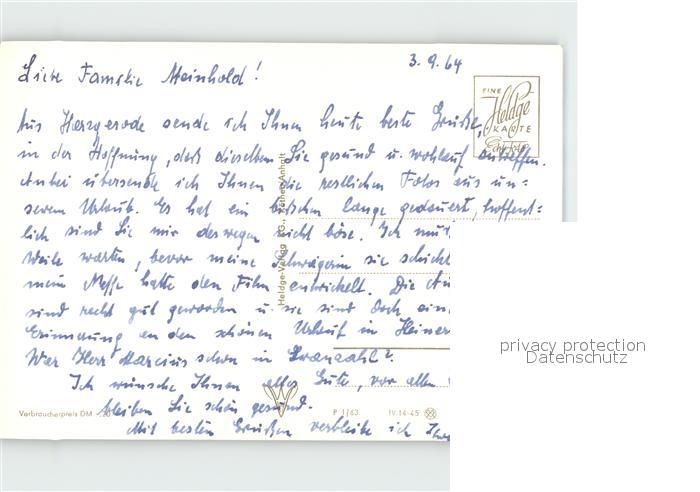 3.9.64
Liebe Familie Meinhold!
EINE
Heldge
KARTE
Echt Foto
Aus Harzgerode sende ich Ihnen heute beste Grüße,
in der Hoffnung, daß dieselben Sie gesund u. wohlauf antreffen.
Anbei übersende ich Ihnen die restlichen Fotos aus un=
serem Urlaub. Es hat ein bißchen lange gedauert, hoffent=
lich sind Sie mir deswegen nicht böse. Ich
Weile warten, bevor meine Schwägerin sie schickt
mein Neffe hatte den Film entwickelt. Die
sind recht gut geworden u. sie sind doch ein
Erinnerung an den schönen Urlaub in
War Herr Marcius schon in Cranzahl?
Ich wünsche Ihnen alles Gute, vor allem
bleiben Sie schön gesund.
Mit besten Grüßen verbleibe ich
Heldge-Verlag KG., Köthen/Anhalt
Verbraucherpreis DM
P 1/63 IV-14-45
privacy protection
Datenschutz